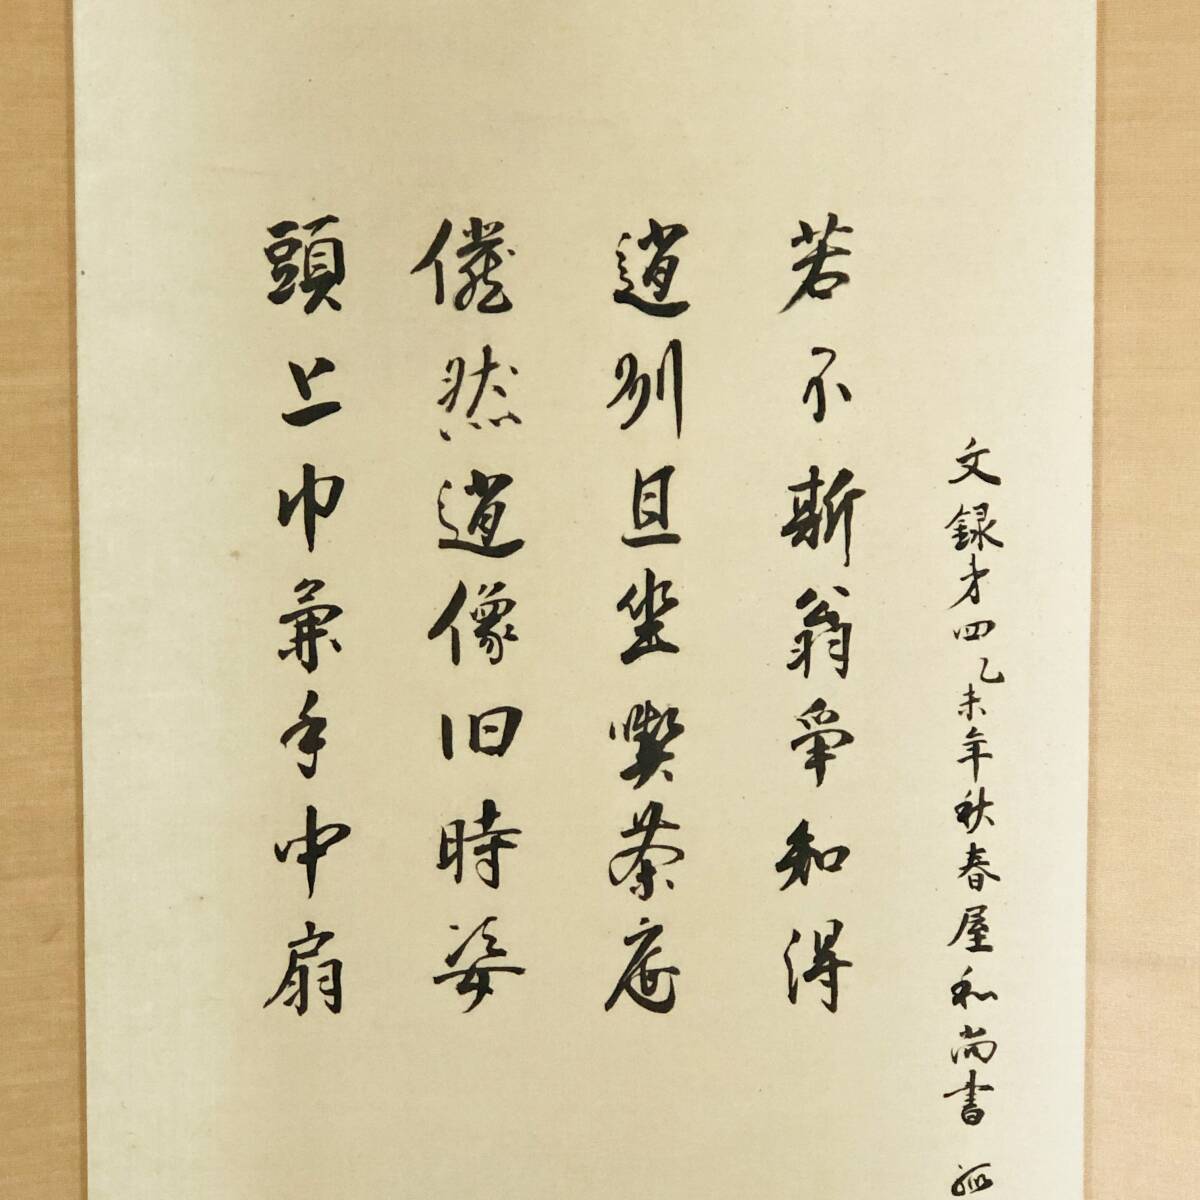 頭上巾兼手中扇
儼然遺像旧時姿
趙州且坐喫茶底
若不斯翁争知得
文録才四乙未年秋春屋和尚書